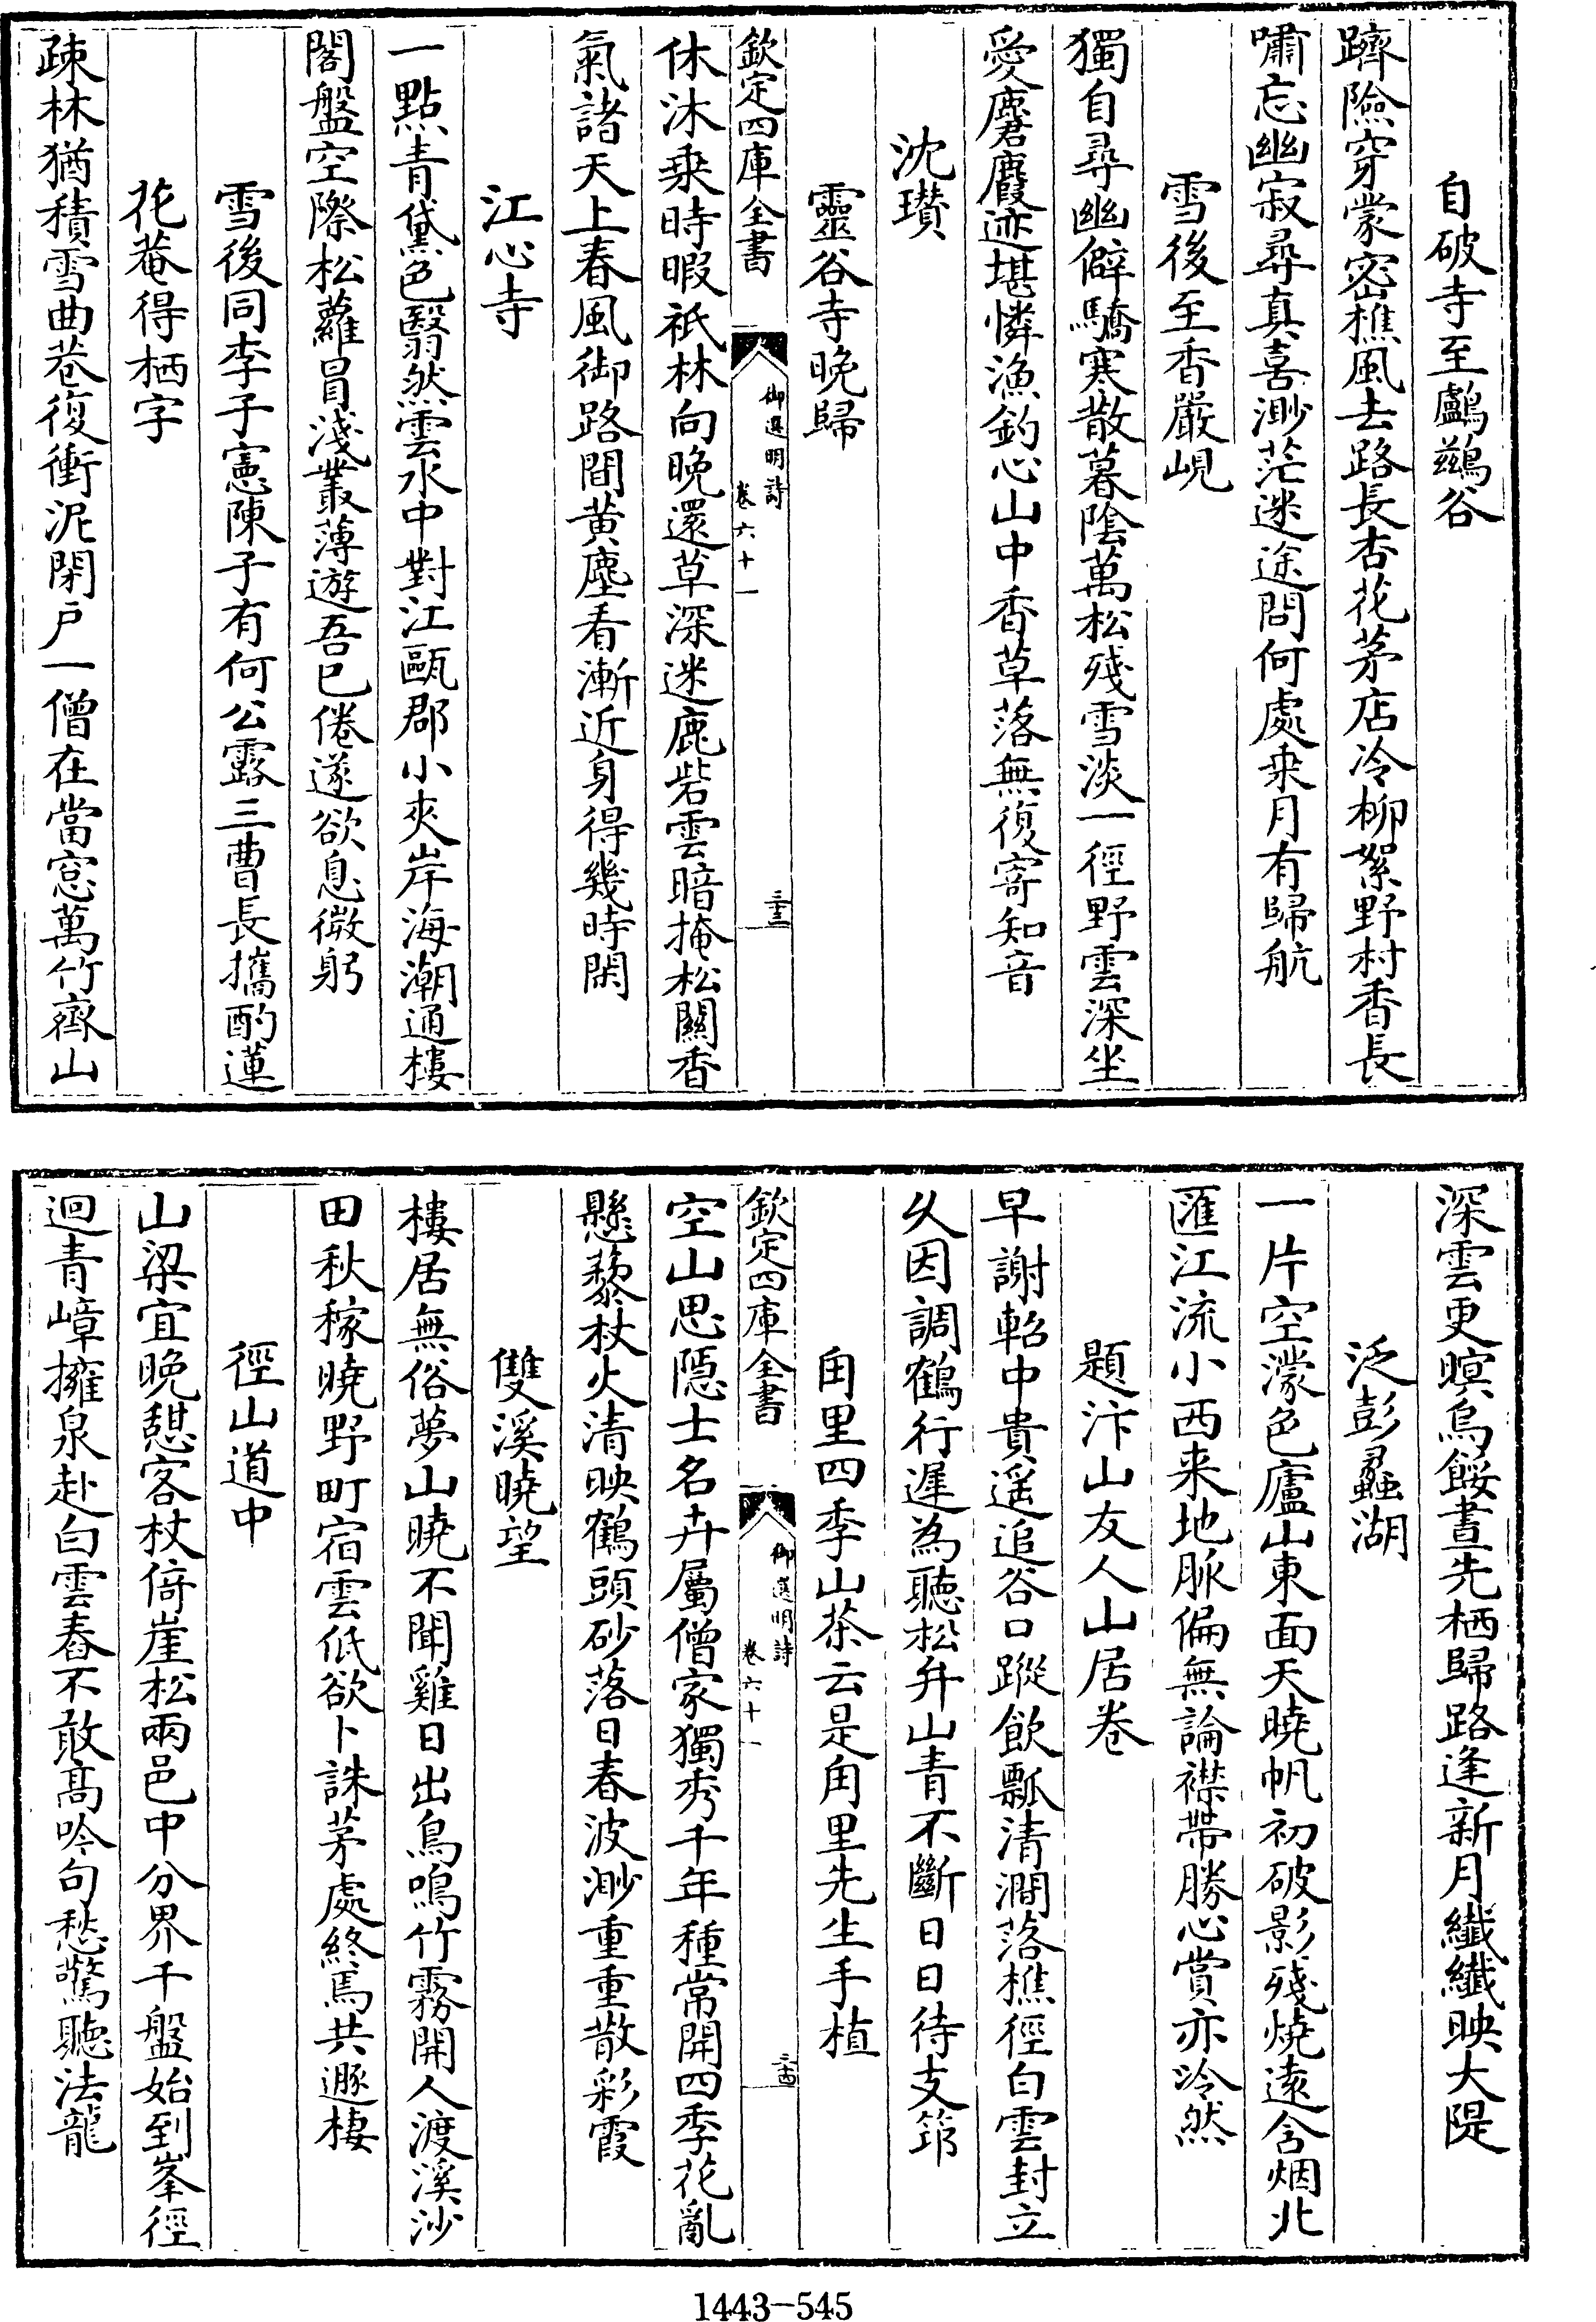 自破寺至鸕鷀谷
躋險穿蒙密樵風去路長杏花茅店冷柳絮野村香長
嘯忘幽寂尋真喜渺茫迷途問何處乗月有歸航
雪後至香嚴峴
獨自尋幽僻驕寒散暮陰萬松殘雪淡一徑野雲深坐
愛麏麚迹堪憐漁釣心山中香草落無復寄知音
沈瓚
靈谷寺晚歸
欽定四庫全書
御選明詩
卷六十一
三十三
休沐乗時暇祇林向晚還草深迷鹿砦雲暗掩松關香
氣諸天上春風御路間黄塵看漸近身得幾時閑
江心寺
一點青黛色翳然雲水中對江甌郡小夾岸海潮通樓
閣盤空際松蘿冒淺叢薄遊吾已倦遂欲息微躬
雪後同李子憲陳子有何公露三曹長攜酌蓮
花菴得栖字
疎林猶積雪曲巷復衝泥閉户一僧在當窓萬竹齊山
深雲更暝烏餒晝先栖歸路逢新月纖纖映大隄
泛彭蠡湖
一片空濛色廬山東面天曉帆初破影殘燒遠含烟北
匯江流小西来地脈偏無論襟帶勝心賞亦泠然
題汴山友人山居卷
早謝軺中貴遥追谷口蹤飲瓢清澗落樵徑白雲封立
久因調鶴行遲為聽松弁山青不斷日日待支筇
甪里四季山茶云是甪里先生手植
欽定四庫全書
御選明詩
卷六十一
三十四
空山思隱士名卉屬僧家獨秀千年種常開四季花亂
懸藜杖火清映鶴頭砂落日春波渺重重散彩霞
雙溪曉望
樓居無俗夢山曉不聞雞日出鳥鳴竹霧開人渡溪沙
田秋稼曉野町宿雲低欲卜誅茅處終焉共遯棲
徑山道中
山梁宜晚憇客杖倚崖松兩邑中分界千盤始到峯徑
迴青嶂擁泉赴白雲舂不敢髙吟句愁驚聽法龍
1443-545